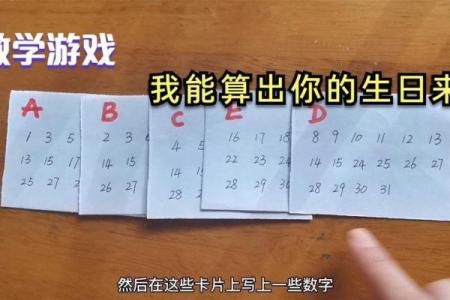 数学游戏
我能算出你的生日来
A
1 3 5
13 15 17
25 27
B
2 3 6
14 15
26 27
C
4 5
14
28
E
16 17 18
22 23 24
28 29 30
D
8 9 10 11 12 13
14 15 24 25 26
28 29 30 31
然后在这些卡片上写上一些数字